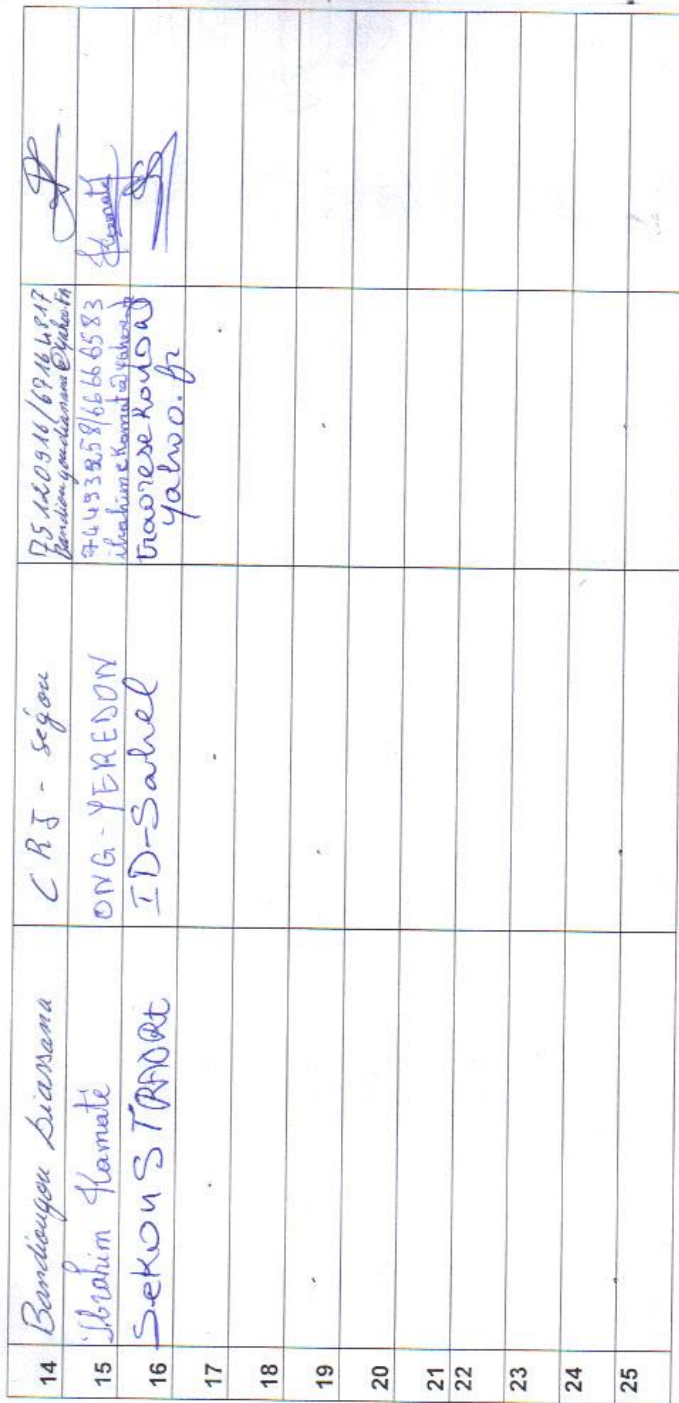 14 Bandiougou Diassana CRJ - Ségou 75120916/67164817
bandiougoudiassana@yahoo.fr
15 Ibrahim Kamaté ONG-YEREDON 74493258/66666583
16 Sekou S TRAORE ID-Sahel traoresekousa@
yahoo.fr
17
18
19
20
21
22
23
24
25